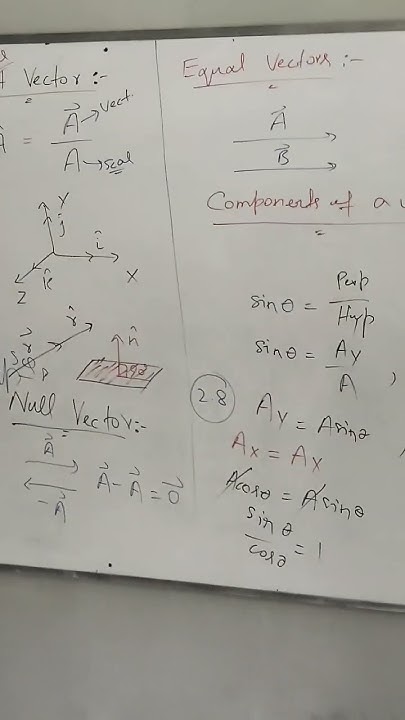 Vector :-
Â = A⃗ → Vect.
A → scal
Y
ĵ
î
k̂
X
Z
r̂
r⃗
n̂
Null Vector:-
A⃗
-A⃗
A⃗ - A⃗ = 0⃗
Equal Vectors :-
A⃗
B⃗
Components of a
sinθ = Perp / Hyp
sinθ = Ay / A ,
2.8
Ay = A sinθ ,
Ax = Ax
Acosθ = Asinθ
sinθ / cosθ = 1